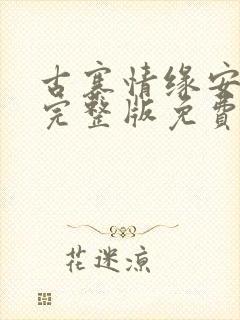 古寨情缘安
完整版免費
花迷凉